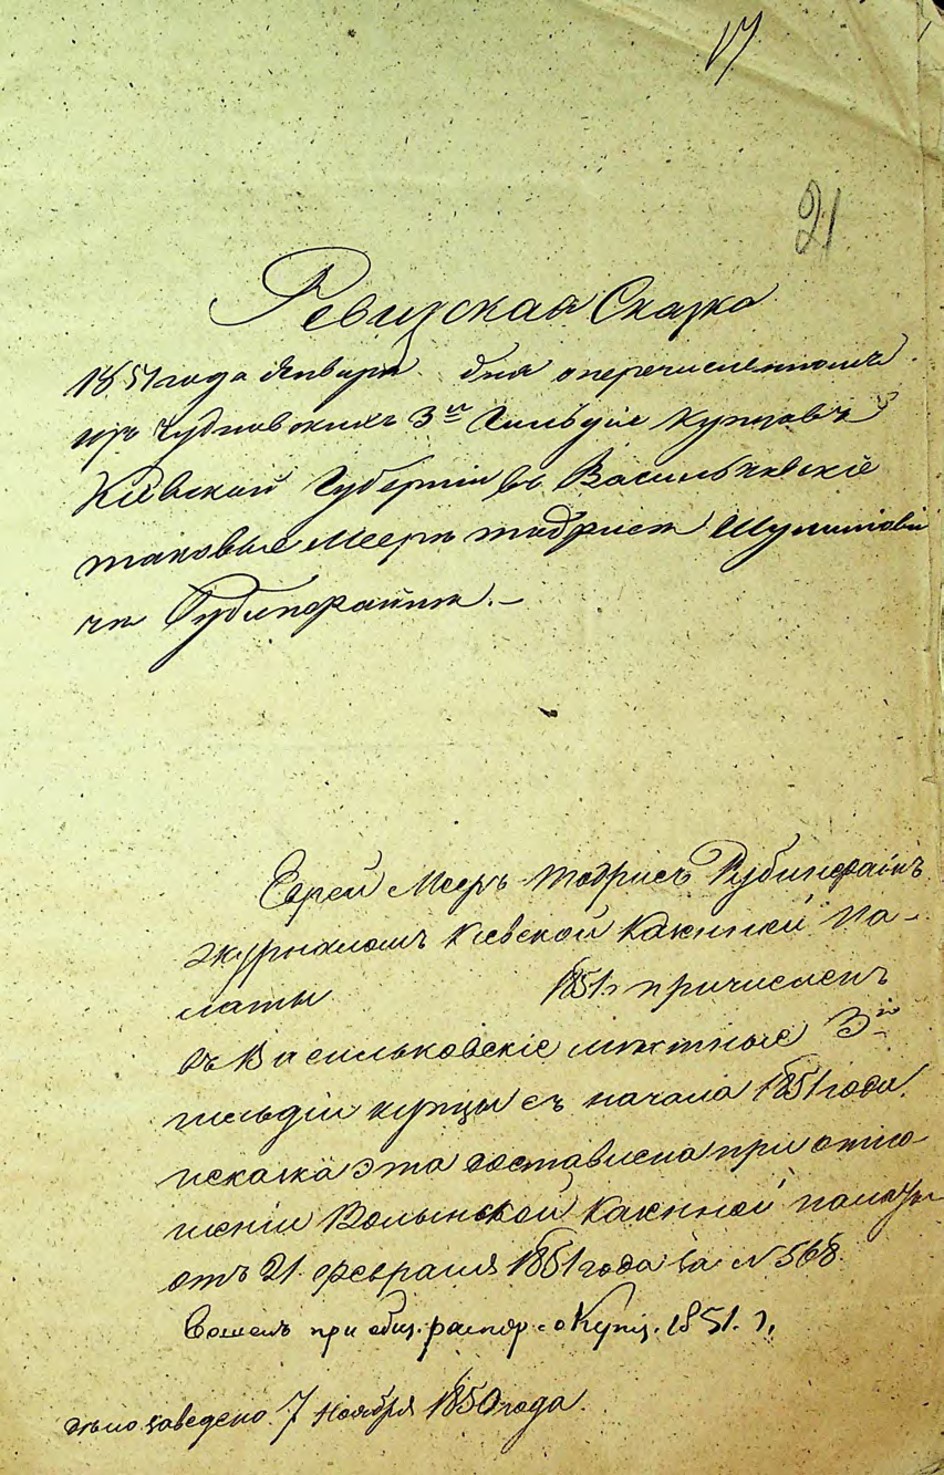 17
21
Ревизская Сказка
1851 года Января дня о перечисленномъ
изъ Чудновскихъ 3й Гильдіи Купцовъ
Кіевской Губерніи въ Васильковскіе
таковые Меерѣ Тодрисѣ Шулимови
чѣ Рубинфайнѣ.—
Еврей Мееръ-Тодрисъ Рубинфайнъ
журналомъ Кіевской Казенной Па-
латы 1851 г. причисленъ
въ Васильковскіе мѣстные 3й
гильдіи купцы съ начала 1851 года.
и сказка эта доставлена при отно-
шеніи Волынской Казенной палаты
отъ 21. февраля 1851 года за N 568.
при общ. распор. о Купц. 1851. г.
дѣло заведено. 7 Ноября 1850 года.